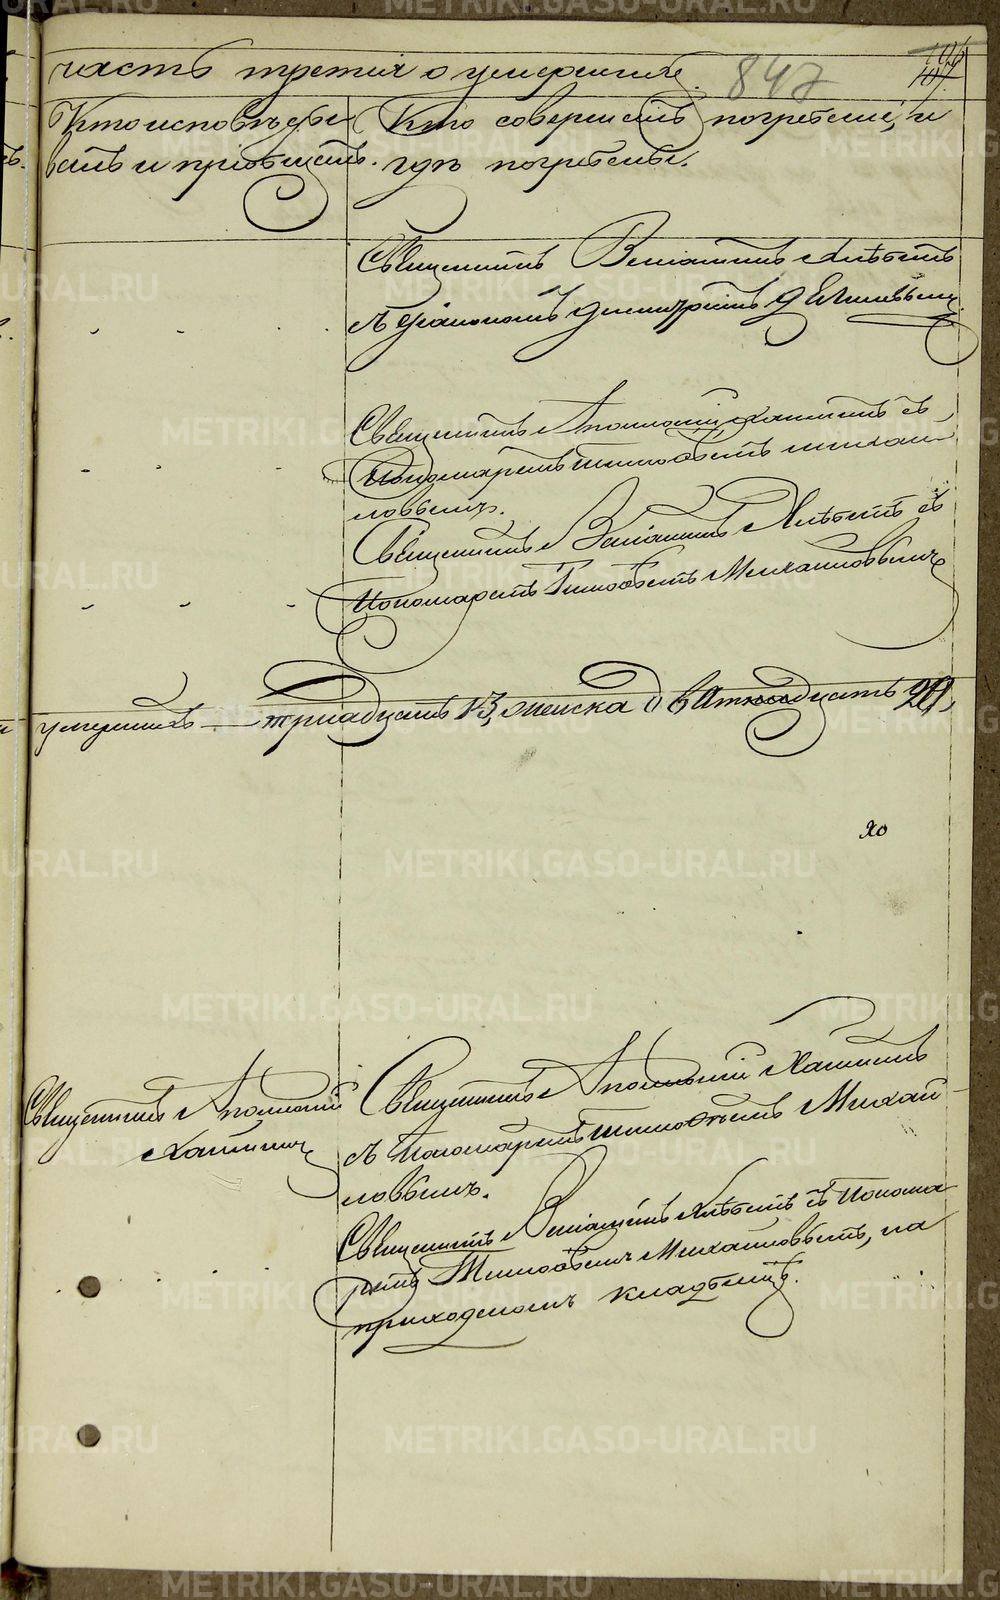 часть третія о умершихъ. 847
106
107
Кто исповѣды
валъ и пріобщалъ.
Кто совершалъ погребеніе, и
гдѣ погребены.
Священникъ Веніаминъ Хлѣбинъ
съ діакономъ Димитріемъ
Священникъ Аполлоній Ханинъ съ
Пономаремъ Тимофѣемъ Михай
ловымъ.
Священникъ Веніаминъ Хлѣбинъ съ
Пономаремъ Тимофѣемъ Михайловымъ
умершихъ тридцать 13, женска двадцать 20,
Священникъ Аполлоній
Ханинъ
Священникъ Аполлоній Ханинъ
съ Пономаремъ Тимофѣемъ Михай
ловымъ.
Священникъ Веніаминъ Хлѣбинъ съ Понома
ремъ Тимофѣемъ Михайловымъ, на
приходскомъ кладбищѣ.
METRIKI.GASO-URAL.RU